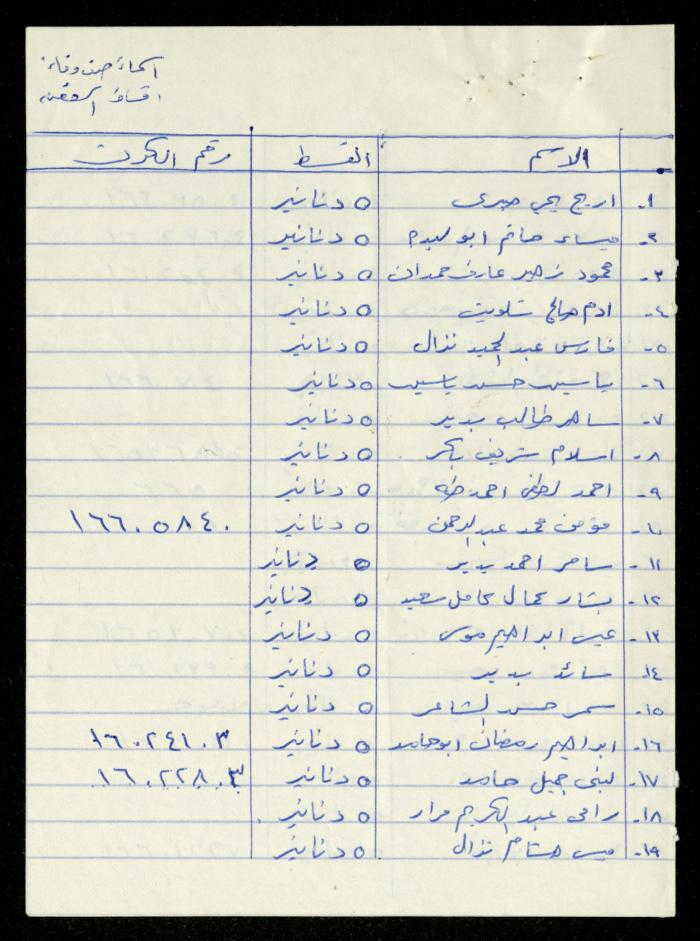 اسماء صندوق
اقساط
الاسم القسط رقم الكرت
١- اريج يحيى صبري ٥ دنانير
٢- ميساء حاتم ابو ٥ دنانير
٣- محمود زهير عارف حمدان ٥ دنانير
٤- ادم صالح شلويت ٥ دنانير
٥- فارس عبد المجيد نزال ٥ دنانير
٦- ياسين حسين ياسين ٥ دنانير
٧- ساهر طالب بدير ٥ دنانير
٨- اسلام شريف بكر ٥ دنانير
٩- احمد لطفي احمد طه ٥ دنانير
١٠- مؤمن محمد عبد الرحمن ٥ دنانير ١٦٦٠٥٨٤٠
١١- سامر احمد بدير ٥ دنانير
١٢- بشار كمال كامل سعيد ٥ دنانير
١٣- عيسى ابراهيم موسى ٥ دنانير
١٤- سائد بدير ٥ دنانير
١٥- سمر حسين الشاعر ٥ دنانير
١٦- ابراهيم رمضان ابو حامد ٥ دنانير ١٦٠٢٤١٠٣
١٧- لبنى جميل حامد ٥ دنانير ١٦٠٢٢٨٠٣
١٨- رامي عبد الكريم مرار ٥ دنانير
١٩- ميس هشام نزال ٥ دنانير